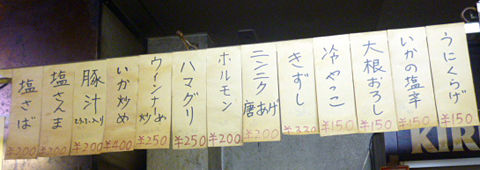 うにくらげ
¥150
いかの塩辛
¥150
大根おろし
¥150
冷やっこ
¥150
きずし
¥330
ニンニク
唐あげ
¥200
ホルモン
¥200
ハマグリ
¥250
ウインナー
炒め
¥250
いか炒め
¥400
豚汁
¥200
塩さんま
¥200
塩さば
¥200
KIR